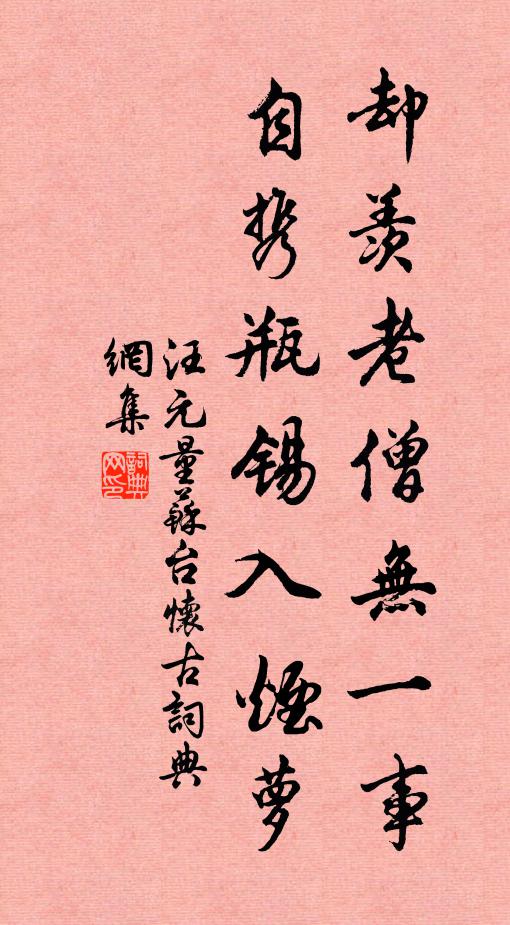 却羨老僧無一事
自携瓶錫入煙萝
汪元量蘇台懷古詞典
網集
詞典網印